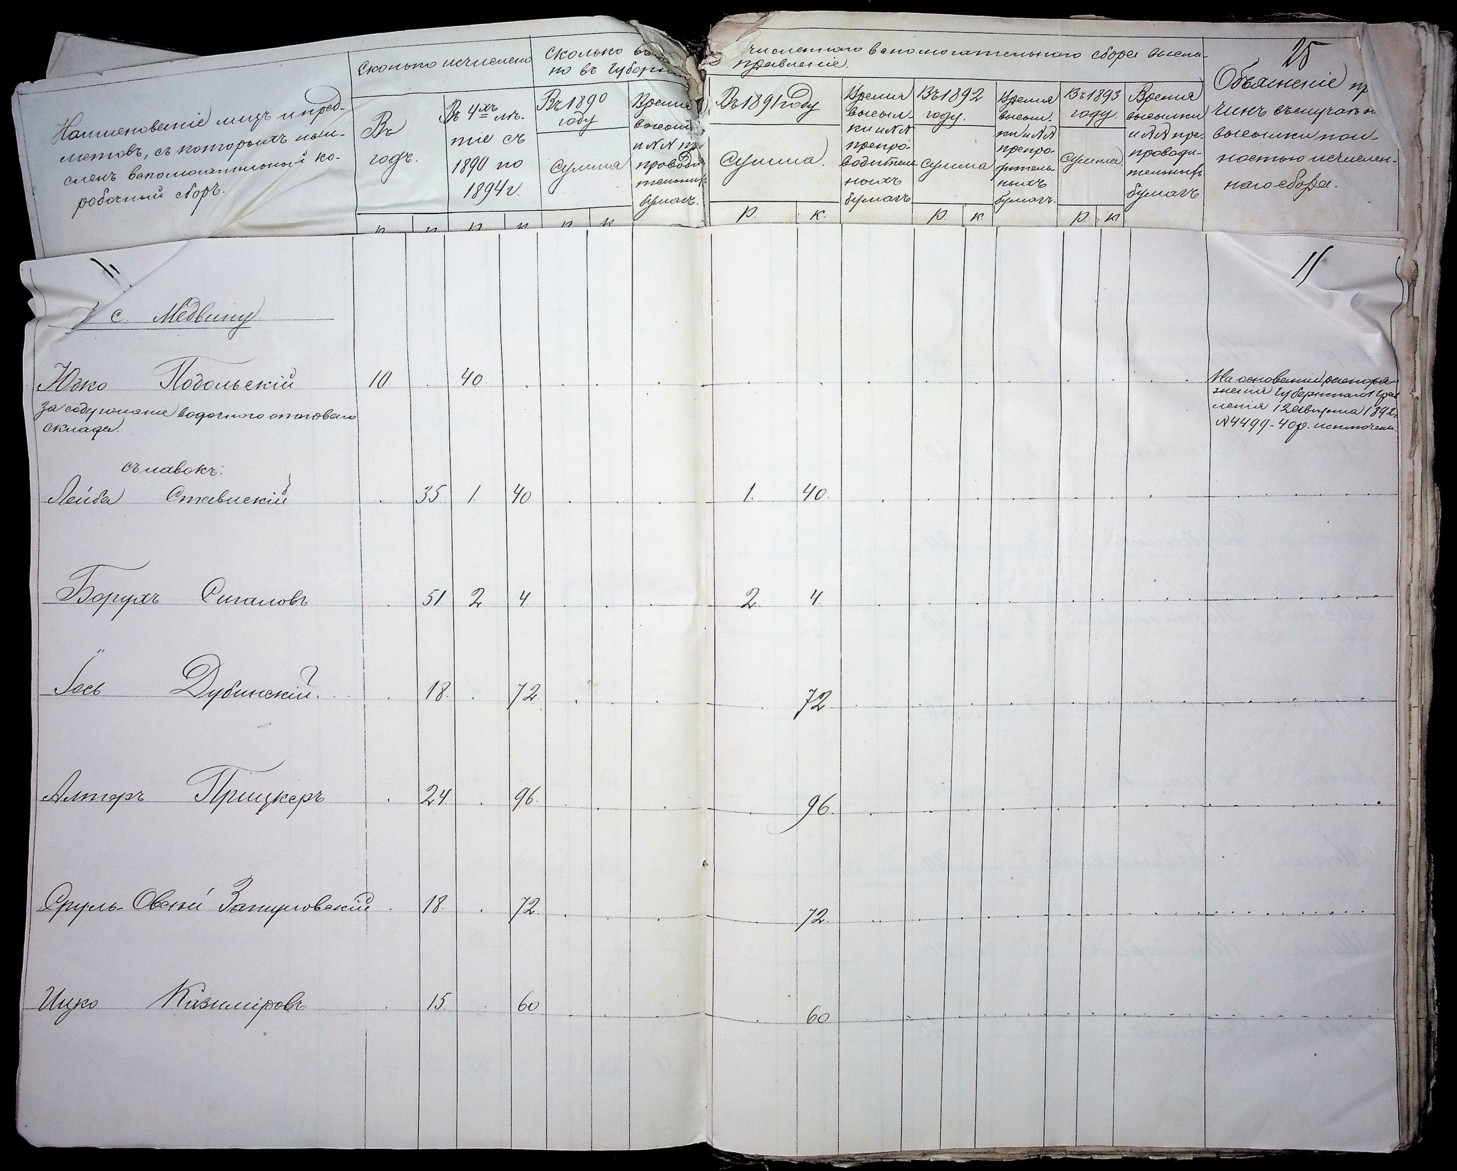 25
Наименованіе лицъ и пред-
метовъ, съ которыхъ исчи-
сленъ вспомогательный ко-
робочный сборъ.
Сколько исчислено
Въ
годъ.
Въ 4хъ лѣ-
тіе съ
1890 по
1894 г.
Сколько въ
но въ Губерн
Въ 1890
году
Сумма
Время
высыл
и №№ пр
провод
тельных
бумагъ.
численнаго вспомогательнаго сбора высла-
правленіе.
Въ 1891 году
Сумма.
Время
высыл-
ки и №№
препро-
водитель
ныхъ
бумагъ
Въ 1892
году.
Сумма
Время
высыл.
ки и №№
препро
дитель
ныхъ
бумагъ.
Въ 1893
году.
Сумма.
Время
высылки
и №№ пре
проводи-
тельных
бумагъ
Объясненіе пр
чинъ въ случаѣ н
высылки пол-
ностью исчислен-
наго сбора.
р. к. р. к р к
11 11
с. Медвину
Юзко Подольскій 10 40
за содержание водочного оптоваго
склада.
На основаніи распоря-
женія Губернскаго Прав
ленія 12 Августа 1892 г.
№ 4499 - 40 р. исключены
съ лавокъ:
Лейба Ставискій 35 1. 40 1. 40.
Борухъ Сигаловъ 51 2 4 2. 4
Іось Дубинскій. 18. 72. 72
Алтеръ Прицкеръ 24 96. 96.
Сруль Овсей Запуговскій 18. 72. 72.
Ицко Казиміровъ 15. 60 60